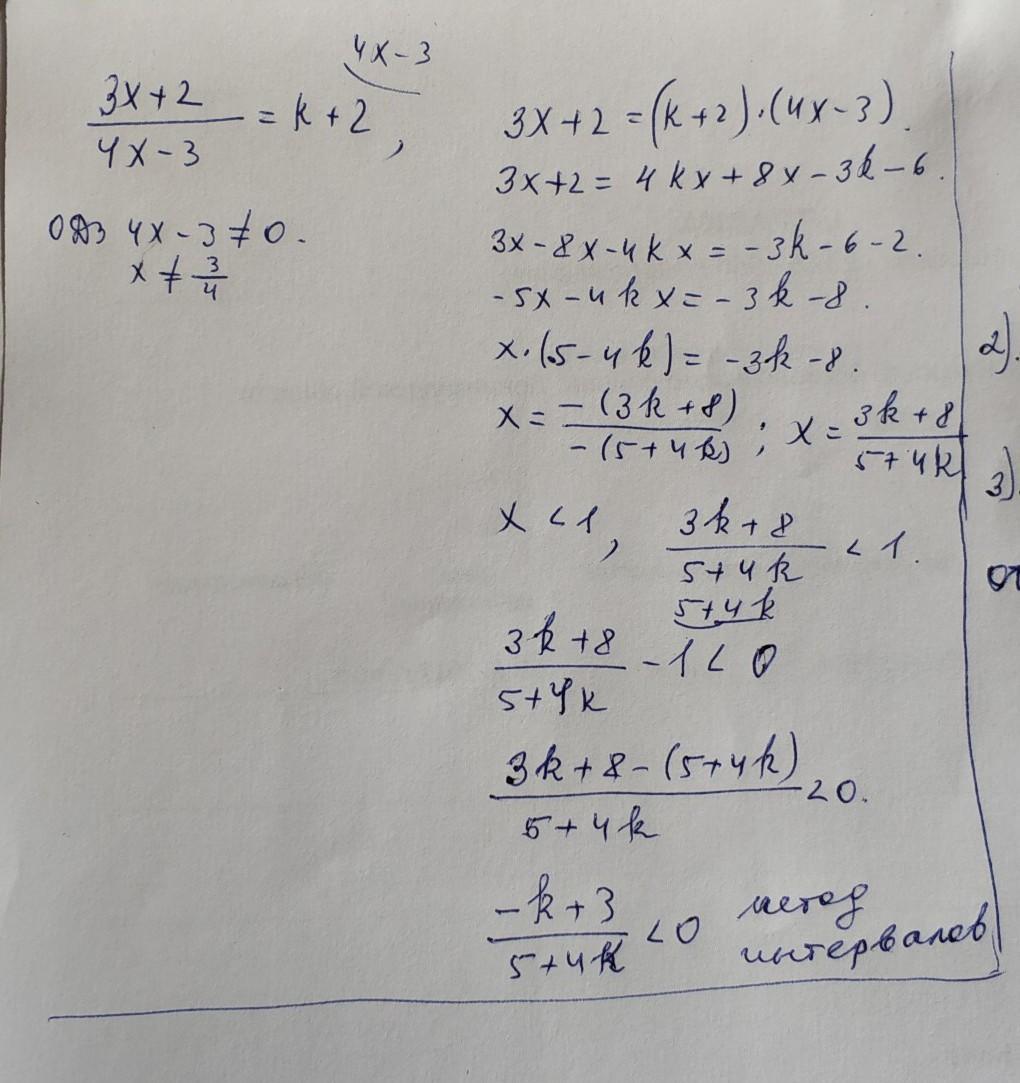 4x-3
3x+2 / 4x-3 = k+2,
ОДЗ 4x-3≠0.
x ≠ 3/4
3x+2 = (k+2)·(4x-3).
3x+2 = 4kx+8x-3k-6.
3x-8x-4kx = -3k-6-2.
-5x-4kx = -3k-8.
x·(5-4k) = -3k-8.
x = -(3k+8) / -(5+4k) ; x = 3k+8 / 5+4k
x < 1, 3k+8 / 5+4k < 1.
5+4k
3k+8 / 5+4k - 1 < 0
3k+8-(5+4k) / 5+4k < 0.
-k+3 / 5+4k < 0 метод
интервалов
2).
3).